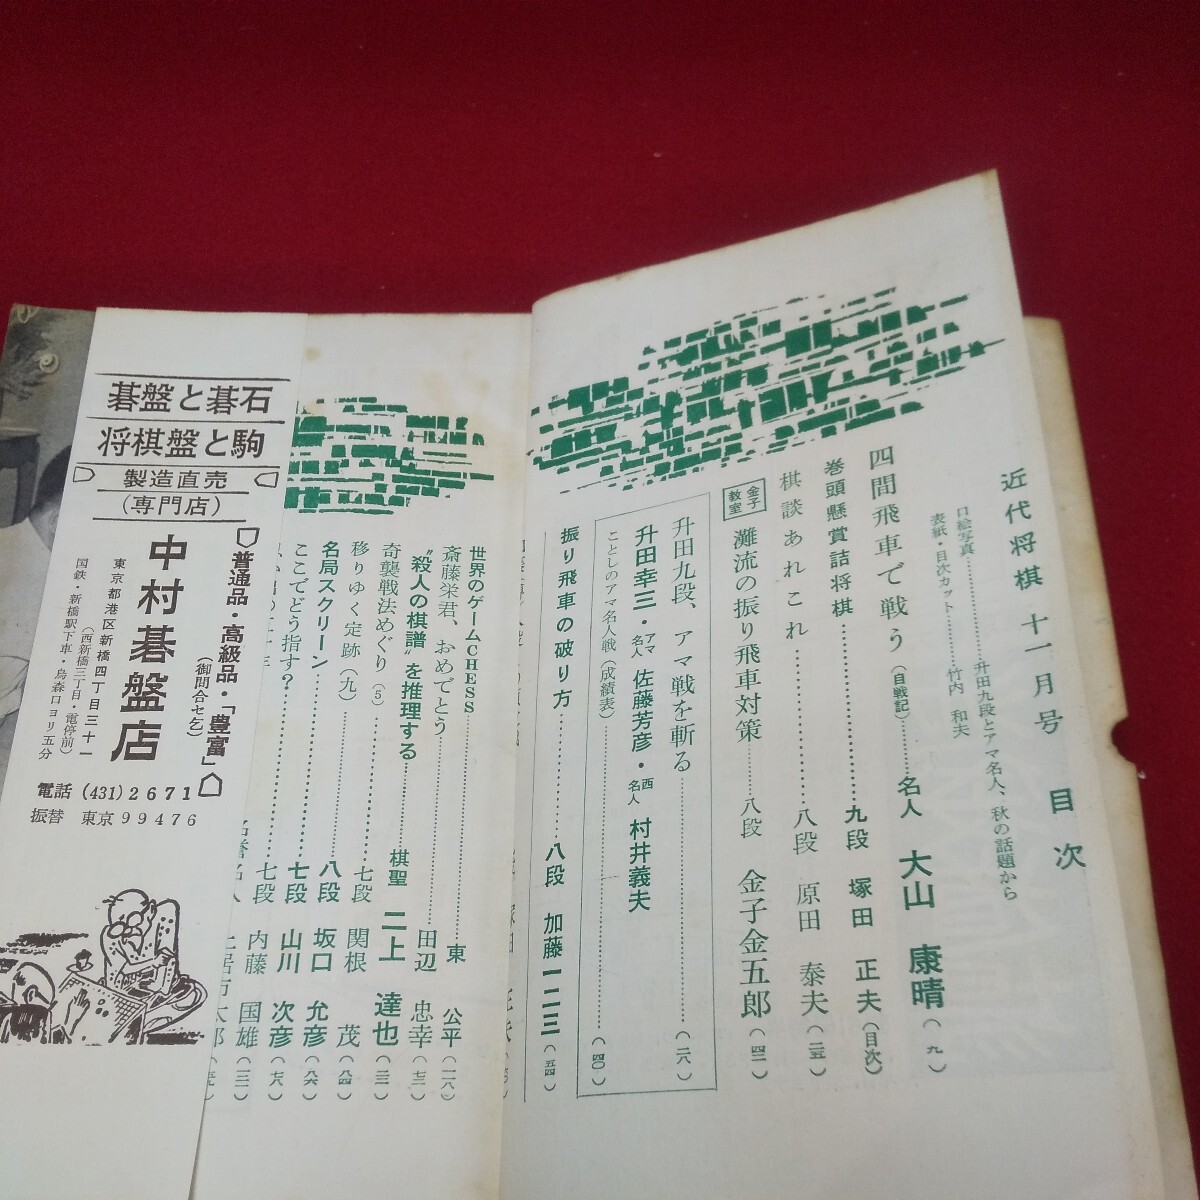 近代将棋 十一月号 目次
口絵写真…………升田九段とアマ名人、秋の話題から
表紙・目次カット…………竹内 和夫
四間飛車で戦う(自戦記)………名人 大山 康晴(九)
巻頭懸賞詰将棋…………九段 塚田 正夫(目次)
棋談あれこれ…………八段 原田 泰夫(二五)
金子教室 灘流の振り飛車対策………八段 金子金五郎(四二)
升田九段、アマ戦を斬る…………(二八)
升田幸三・アマ名人 佐藤芳彦・西名人 村井義夫
ことしのアマ名人戦(成績表)…………(四〇)
振り飛車の破り方…………八段 加藤一二三(五四)
世界のゲームCHESS…………東 公平
斎藤栄君、おめでとう…………田辺 忠幸
〝殺人の棋譜〟を推理する…………棋聖 二上 達也
奇襲戦法めぐり(5)…………七段 関根 茂(八四)
移りゆく定跡(九)…………八段 坂口 允彦
名局スクリーン…………七段 山川 次彦
ここでどう指す?…………七段 内藤 国雄
碁盤と碁石
将棋盤と駒
製造直売
(専門店)
普通品・高級品・「豊富」
(御問合せ乞)
中村碁盤店
東京都港区新橋四丁目三十一
(西新橋三丁目・電停前)
国鉄・新橋駅下車・烏森口ヨリ五分
電話 (431)2671
振替 東京99476